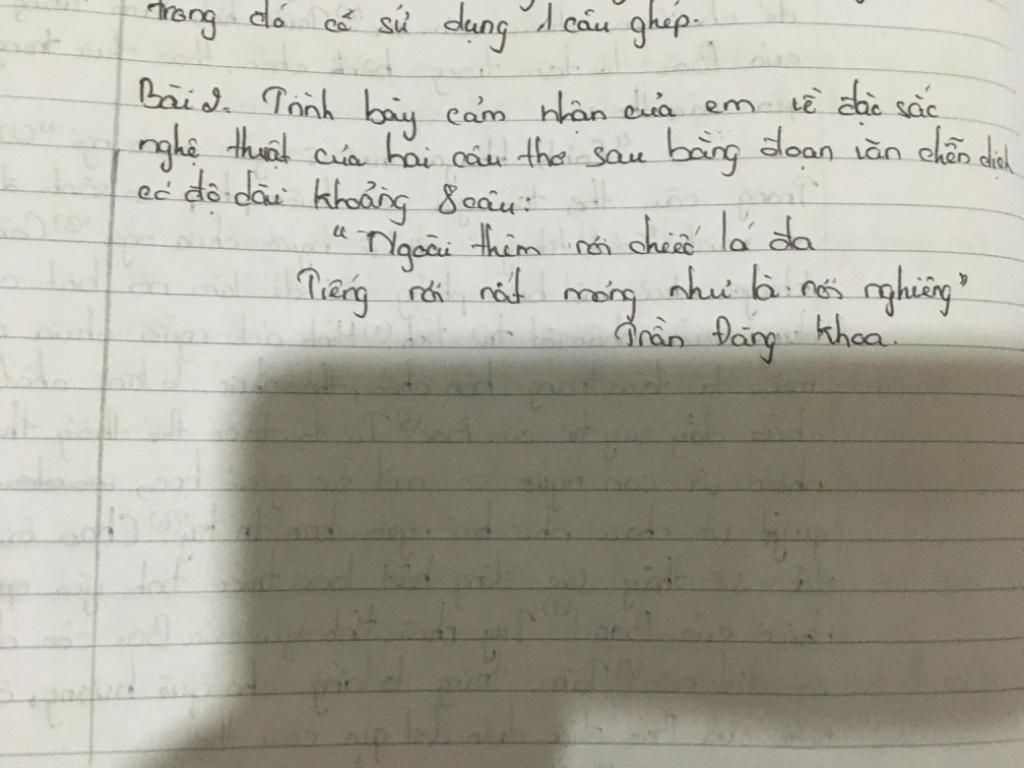 trong đó có sử dụng 1 câu ghép.
Bài 2. Trình bày cảm nhận của em về đặc sắc
nghệ thuật của hai câu thơ sau bằng đoạn văn diễn dịch
có độ dài khoảng 8 câu:
"Ngoài thềm rơi chiếc lá đa
Tiếng rơi rất mỏng như là rơi nghiêng"
Trần Đăng Khoa.